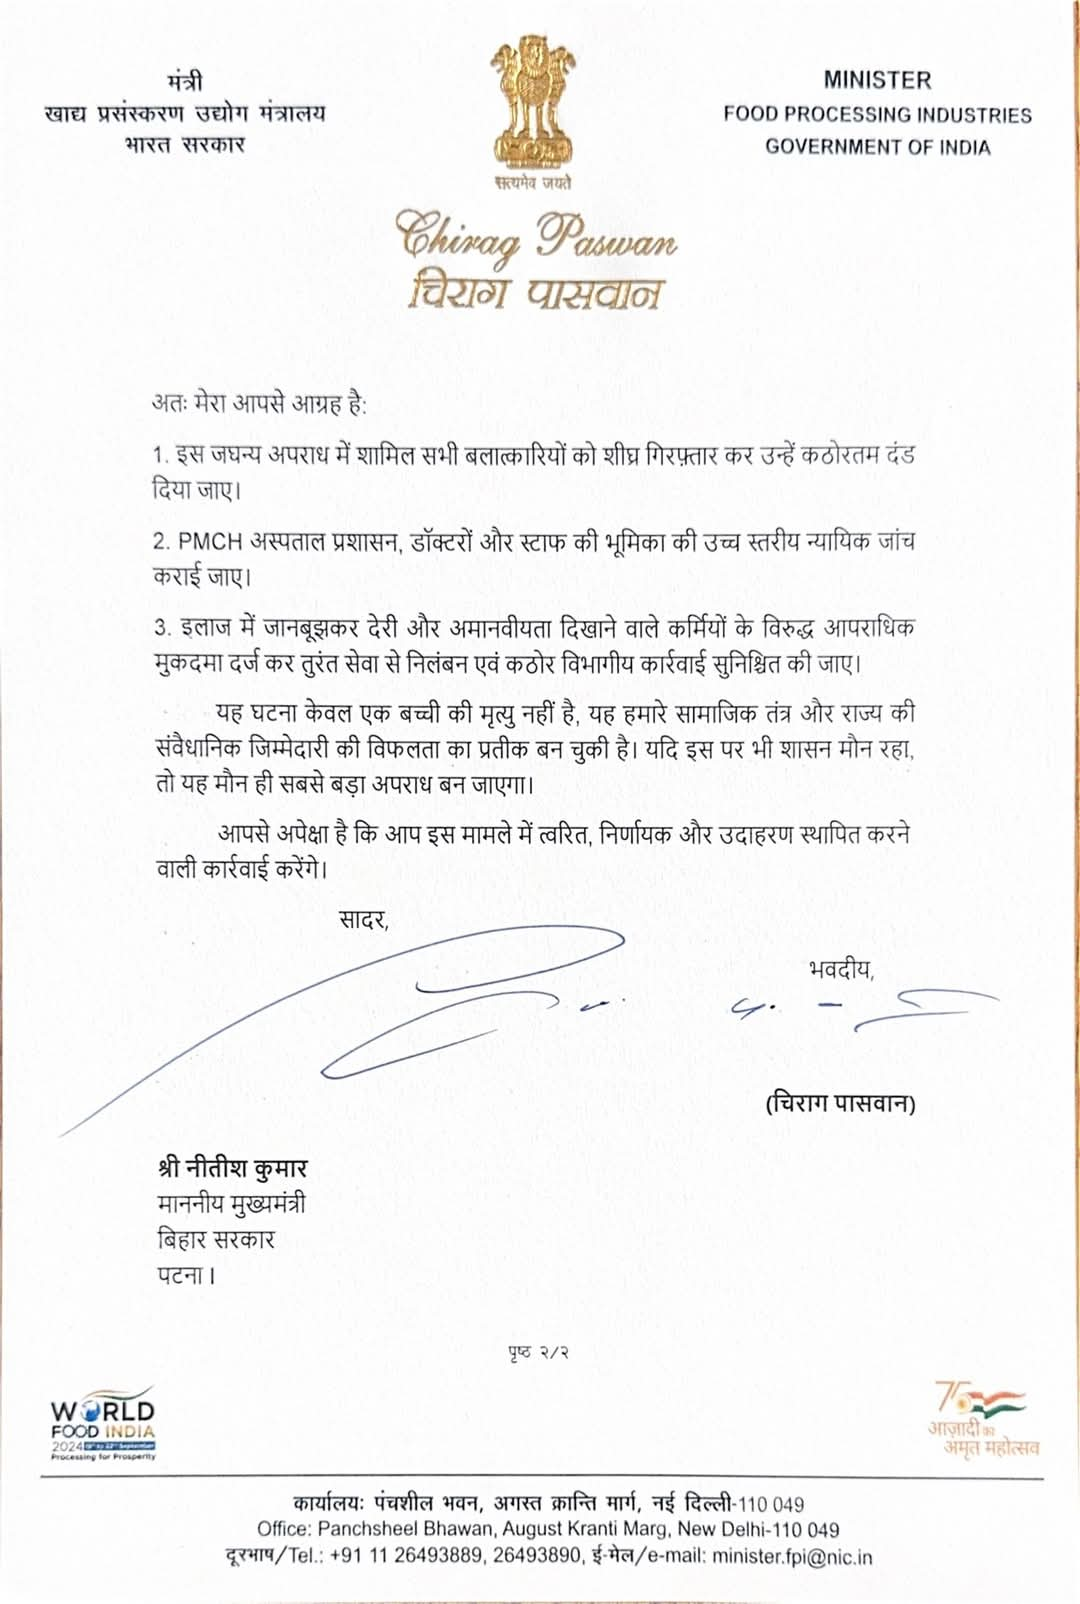 मंत्री
खाद्य प्रसंस्करण उद्योग मंत्रालय
भारत सरकार
सत्यमेव जयते
MINISTER
FOOD PROCESSING INDUSTRIES
GOVERNMENT OF INDIA
Chirag Paswan
चिराग पासवान
अतः मेरा आपसे आग्रह है:
1. इस जघन्य अपराध में शामिल सभी बलात्कारियों को शीघ्र गिरफ़्तार कर उन्हें कठोरतम दंड
दिया जाए।
2. PMCH अस्पताल प्रशासन, डॉक्टरों और स्टाफ की भूमिका की उच्च स्तरीय न्यायिक जांच
कराई जाए।
3. इलाज में जानबूझकर देरी और अमानवीयता दिखाने वाले कर्मियों के विरुद्ध आपराधिक
मुकदमा दर्ज कर तुरंत सेवा से निलंबन एवं कठोर विभागीय कार्रवाई सुनिश्चित की जाए।
यह घटना केवल एक बच्ची की मृत्यु नहीं है, यह हमारे सामाजिक तंत्र और राज्य की
संवैधानिक जिम्मेदारी की विफलता का प्रतीक बन चुकी है। यदि इस पर भी शासन मौन रहा,
तो यह मौन ही सबसे बड़ा अपराध बन जाएगा।
आपसे अपेक्षा है कि आप इस मामले में त्वरित, निर्णायक और उदाहरण स्थापित करने
वाली कार्रवाई करेंगे।
सादर,
भवदीय,
(चिराग पासवान)
श्री नीतीश कुमार
माननीय मुख्यमंत्री
बिहार सरकार
पटना।
पृष्ठ २/२
WORLD
FOOD INDIA
2024 19th to 22nd September
Processing for Prosperity
75
आज़ादी का
अमृत महोत्सव
कार्यालयः पंचशील भवन, अगस्त क्रान्ति मार्ग, नई दिल्ली-110 049
Office: Panchsheel Bhawan, August Kranti Marg, New Delhi-110 049
दूरभाष/Tel.: +91 11 26493889, 26493890, ई-मेल/e-mail: minister.fpi@nic.in